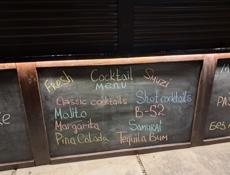 Fresh Cocktail Smuzi
menu
Classic cocktails
Mojito
Margarita
Pina Colada
Shot cocktails
B-52
Samurai
Tequila Bum